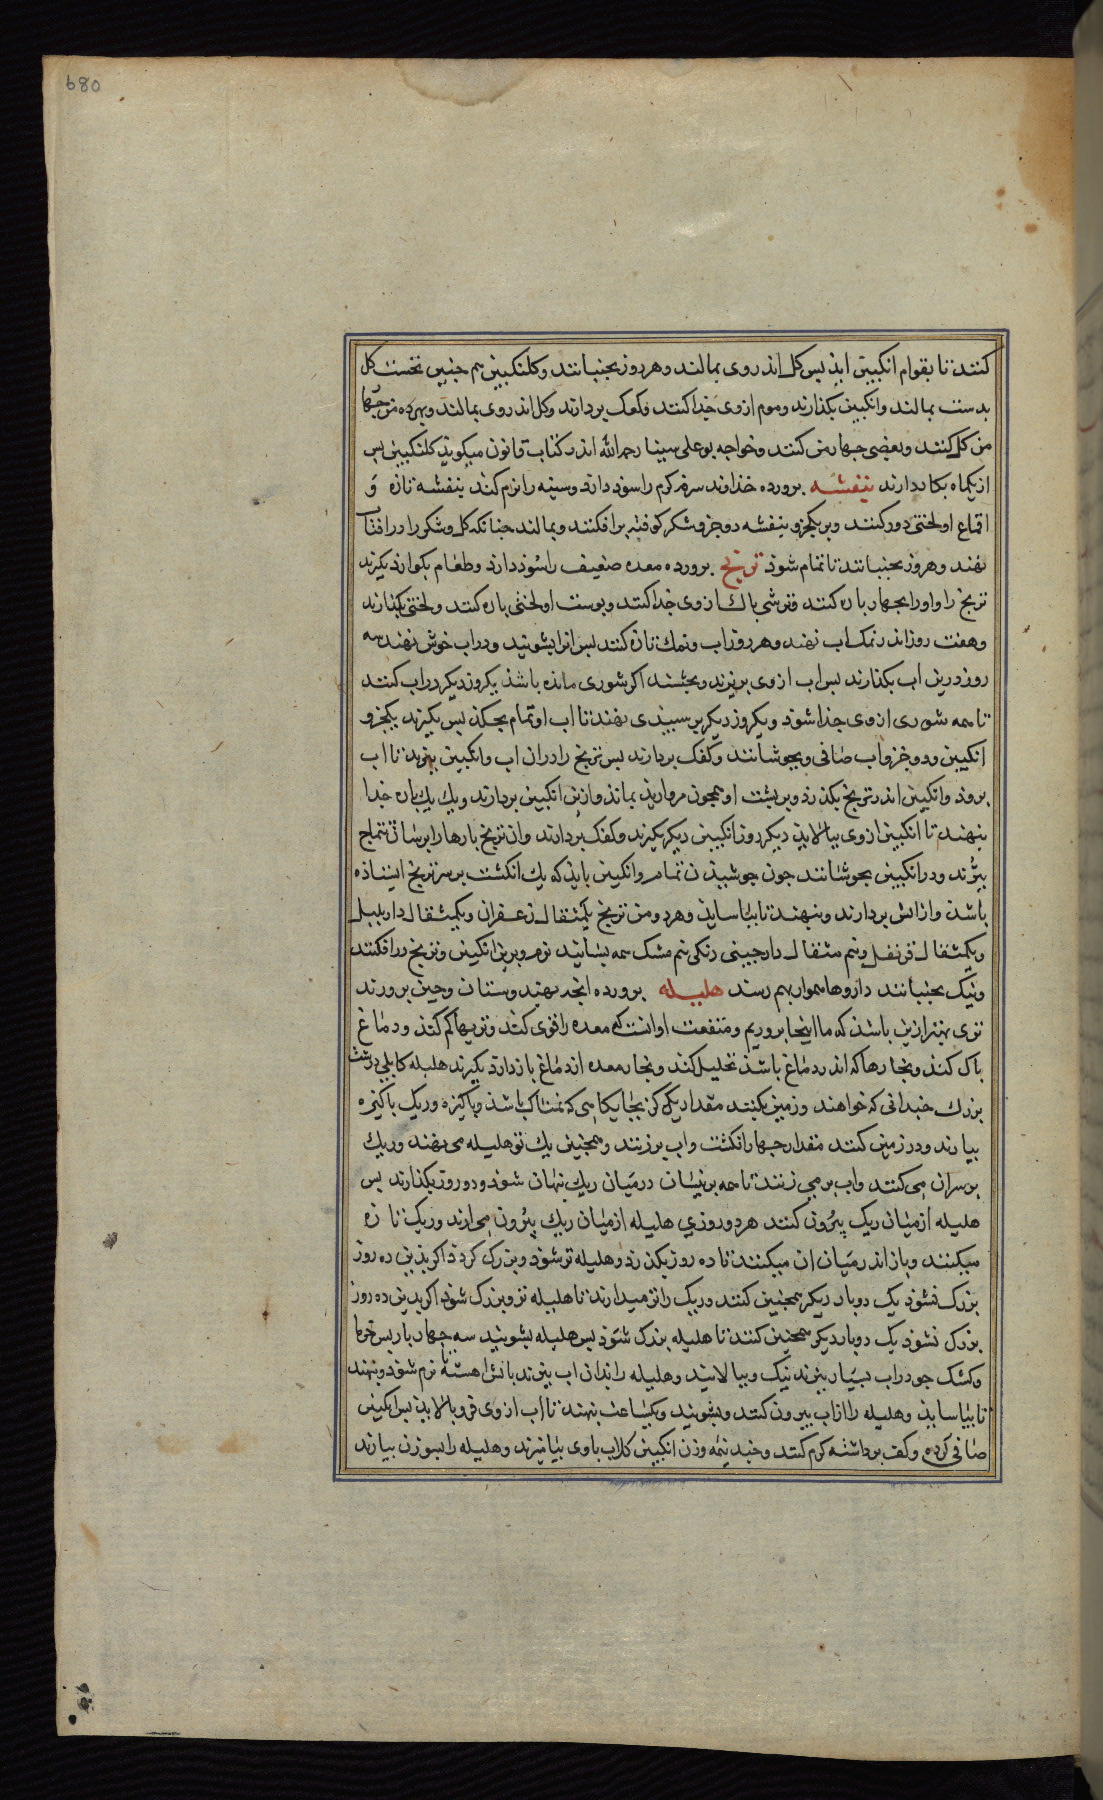 680
کنند تا بقوام انکبین اید پس کل اندر وی بمالند و هر روز بجنبانند و کلنکبین هم جنین نخست کل
بدست بمالند و انکبین بکذارند و موم از وی جدا کنند و کفک بردارند و کل اندر وی بمالند و بهر ده من جهار
من کل کنند و بعضی جهار من کنند و خواجه بو علی سینا رحمه الله اندر کتاب قانون میکوید کلنکبین پس
از یکماه بکار دارند بنفشه برورده خداوند سرفه کرم را سود دارد و سینه را نرم کند بنفشه تازه و
اقماع او لختی دور کنند و بر یکجزو بنفشه دو جزو شکر کوفته برافکنند و بمالند جنانکه کل و شکر را در افتاب
نهند و هر روز بجنبانند تا تمام شود ترنج برورده معده ضعیف را سود دارد و طعام بکوارد بکیرند
ترنج را و او را بجهار باره کنند و ترشی باک از وی جدا کنند و بوست او لختی باره کنند و لختی بکذارند
و هفت روز اندر نمک اب نهند و هر روز اب و نمک تازه کنند پس انرا بشویند و در اب خوش نهند سه
روز درین اب بکذارند پس اب از وی بریزند و بجشند اکر شوری مانده باشد یکروز دیکر در اب کنند
تا همه شوری از وی جدا شود و یکروز دیکر بر سبیدی نهند تا اب او تمام بجکد پس بکیرند یکجزو
انکبین و دو جزو اب صافی و بجوشانند و کفک بردارند پس ترنج را در ان اب و انکبین بپزند تا اب
برود و انکبین اندر ترنج بکذرد و بر پشت او همجون مروارید بماند و ازین انکبین بردارند و یک یک باره جدا
بنهند تا انکبین از وی بیالاید دیکر روز انکبین دیکر بکیرند و کفک بردارند و ان ترنج بارها را برسان تتماج
ببرند و در انکبین بجوشانند جون جوشیدن تمام و انکبین باید که یک انکشت بر سر ترنج ایستاده
باشد و از اتش بردارند و بنهند تا بیاساید و هر ده من ترنج یکمثقال زعفران و یکمثقال دار بلبل
و یکمثقال قرنفل و نیم مثقال دارجینی دنکی نیم مشک همه بسایند نرم و برین انکبین و ترنج درافکنند
و نیک بجنبانند داروها هموار بهم رسد هلیله برورده انجه بهند وستان و جین برورند
تری بهتر ازین باشد که ما اینجا بروریم و منفعت او انست که معده را قوی کند و تریها کم کند و دماغ
باک کند و بخارها که اندر دماغ باشد تحلیل کند و بخار معده از دماغ بازدارد بکیرند هلیله کابلی درشت
بزرک جندانی که خواهند و زمین بکنند مقدار یک کز بجایکاهی که نمناک باشد و پاکیزه و ریک پاکیزه
بیارند و در زمین کنند مقدار جهار انکشت و اب برزنند و همجنین یک تو هلیله می نهند و ریک
بر سر ان می کنند و اب بر می زنند تا همه برینسان در میان ریک نهان شود و دو روز بکذارند پس
هلیله از میان ریک بیرون کنند هر دو روزی هلیله از میان ریک بیرون می ارند و ریک تازه
میکنند و باز اندر میان ان میکنند تا ده روز بکذرد و هلیله تر شود و بزرک کردد اکر بدین ده روز
بزرک نشود یک دو بار دیکر همجنین کنند و ریک را تر میدارند تا هلیله تر و بزرک شود اکر بدین ده روز
بزرک نشود یک دو بار دیکر همجنین کنند تا هلیله بزرک شود پس هلیله بشویند سه جهار بار پس خرما
و کشک جو در اب بسیار بپزند نیک و بیالایند و هلیله را بدان اب بپزند باتش اهسته تا نرم شود و بنهند
تا بیاساید و هلیله را از اب بیرون کنند و بشویند و یکساعت بنهند تا اب از وی فرو بالاید پس انکبین
صافی کرده و کف برداشته کرم کنند و جند نیمه وزن انکبین کلاب با وی بیامیزند و هلیله را بسوزن بیازند